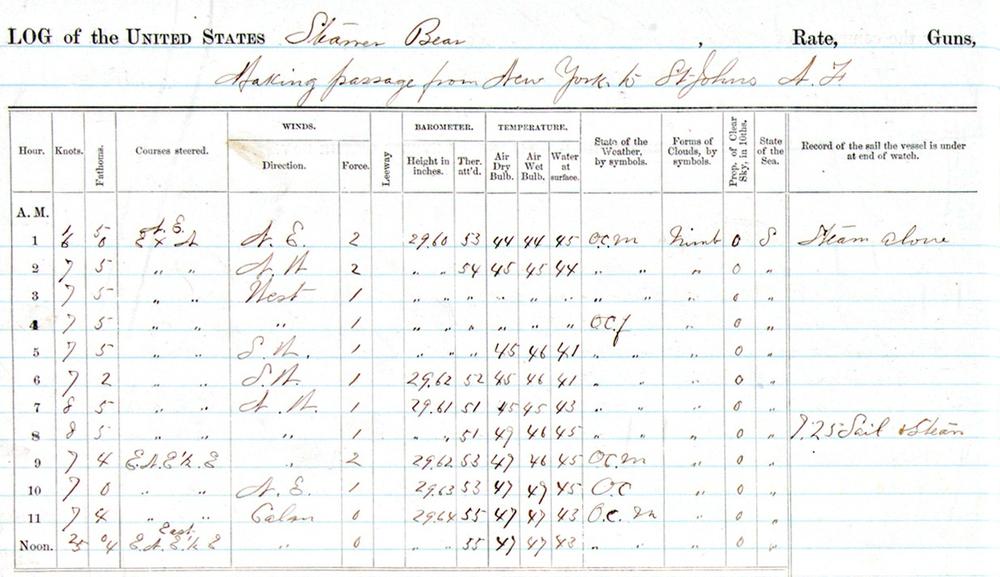 LOG of the UNITED STATES Steamer Bear , Rate, Guns,
Making passage from New York to St Johns N. F.
Hour. Knots. Fathoms. Courses steered. WINDS. Direction. Force. Leeway BAROMETER. Height in inches. Ther. att'd. TEMPERATURE. Air Dry Bulb. Air Wet Bulb. Water at surface. State of the Weather, by symbols. Forms of Clouds, by symbols. Prop. of Clear Sky, in 10ths. State of the Sea. Record of the sail the vessel is under at end of watch.
A. M.
1 N. E. 2 29.60 53 44 44 45 O.c.m Nimb 0 S Steam alone
2 7 5 " " N. W. 2 " " 54 45 45 44 " " " 0 "
3 7 5 " " West 1 " " " " " " " " " 0 "
4 7 5 " " " 1 " " " " " " O.c.f " 0 "
5 7 5 " " S. W. 1 " " " 45 46 41 " " " 0 "
6 7 2 " " S. W. 1 29.62 52 45 46 41 " " " 0 "
7 8 5 " " N. W. 1 29.61 51 45 45 43 " " " 0 "
8 8 5 " " " 1 " " 51 49 46 45 " " " 0 " 7.25 Sail & Steam
9 7 4 E.N.E ½ E " 2 29.62 53 47 46 45 O.c.m " 0 "
10 7 0 " " N. E. 1 29.63 53 47 47 45 O.c " 0 "
11 7 4 " " Calm 0 29.64 55 47 47 43 O.c. m " 0 "
Noon. East. E.N.E ½ E " 0 55 47 47 43 " " " 0 "